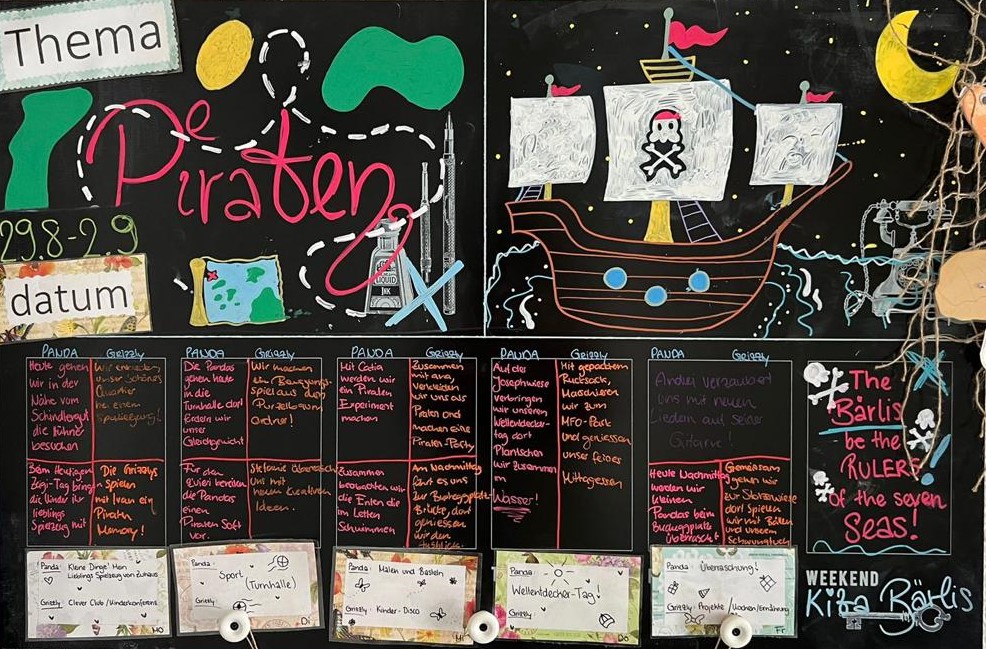 Thema
Piraten
29.8-2.9
datum
LIQUID
INK
PANDA
Grizzly
Heute gehen
wir in der
Nähe vom
Schindlergut
die Hühner
besuchen
Wir erkunden
unser Schönes
Quartier
bei einem
Spaziergang!
Beim Heutigen
Zeigi-Tag bringen
die Kinder ihr
lieblings
Spielzeug mit
Die Grizzlys
spielen
mit Ivan ein
Piraten
Memory!
PANDA
Grizzly
Die Pandas
gehen heute
in die
Turnhalle dort
fördern wir
unser
Gleichgewicht
Wir machen
ein Bewegungs-
spiel aus dem
Purzelbaum
Ordner!
Für den
Zvieri bereiten
die Pandas
einen
Piraten Saft
vor.
Stefanie überrascht
uns mit
neuen kreativen
Ideen.
PANDA
Grizzly
Mit Catia
werden wir
ein Piraten
Experiment
machen
Zusammen
mit
verkleiden
wir uns als
Piraten und
machen eine
Piraten-Party
Zusammen
beobachten wir
die Enten die
im Letten
Schwimmen
Am Nachmittag
es uns
zur
Brücke, dort
geniessen
wir den
PANDA
Grizzly
Auf der
Josephwiese
verbringen
wir unseren
Weltentdecker-
tag dort
Planschen
wir zusammen
im
Wasser!
Mit gepacktem
Rucksack,
Marschieren
wir zum
MFO-Park
und geniessen
unser feines
Mittagessen
PANDA
Grizzly
verzaubert
uns mit neuen
Liedern auf seine
Gitarre!
Heute Nachmittag
werden wir
kleinen
Pandas beim
überrascht
Gemeinsam
gehen wir
zur
dort Spielen
wir mit Bällen
und unserem
Schwungtuch
The
Bärlis
be the
RULERS
of the seven
Seas!
Panda: Kleine Dinge! Mein
Lieblings Spielzeug von zuhaus
Grizzly: Clever Club / Kinderkonferenz
MO
Panda:
Sport
(Turnhalle)
Grizzly:
Di
Panda: Malen und Basteln
Grizzly: Kinder-Disco
Mi
Panda:
Weltentdecher-Tag!
Grizzly:
Do
Panda: Überraschung!
Grizzly: Projekte / Kochen/Ernährung
Fr
WEEKEND
Kita Bärlis